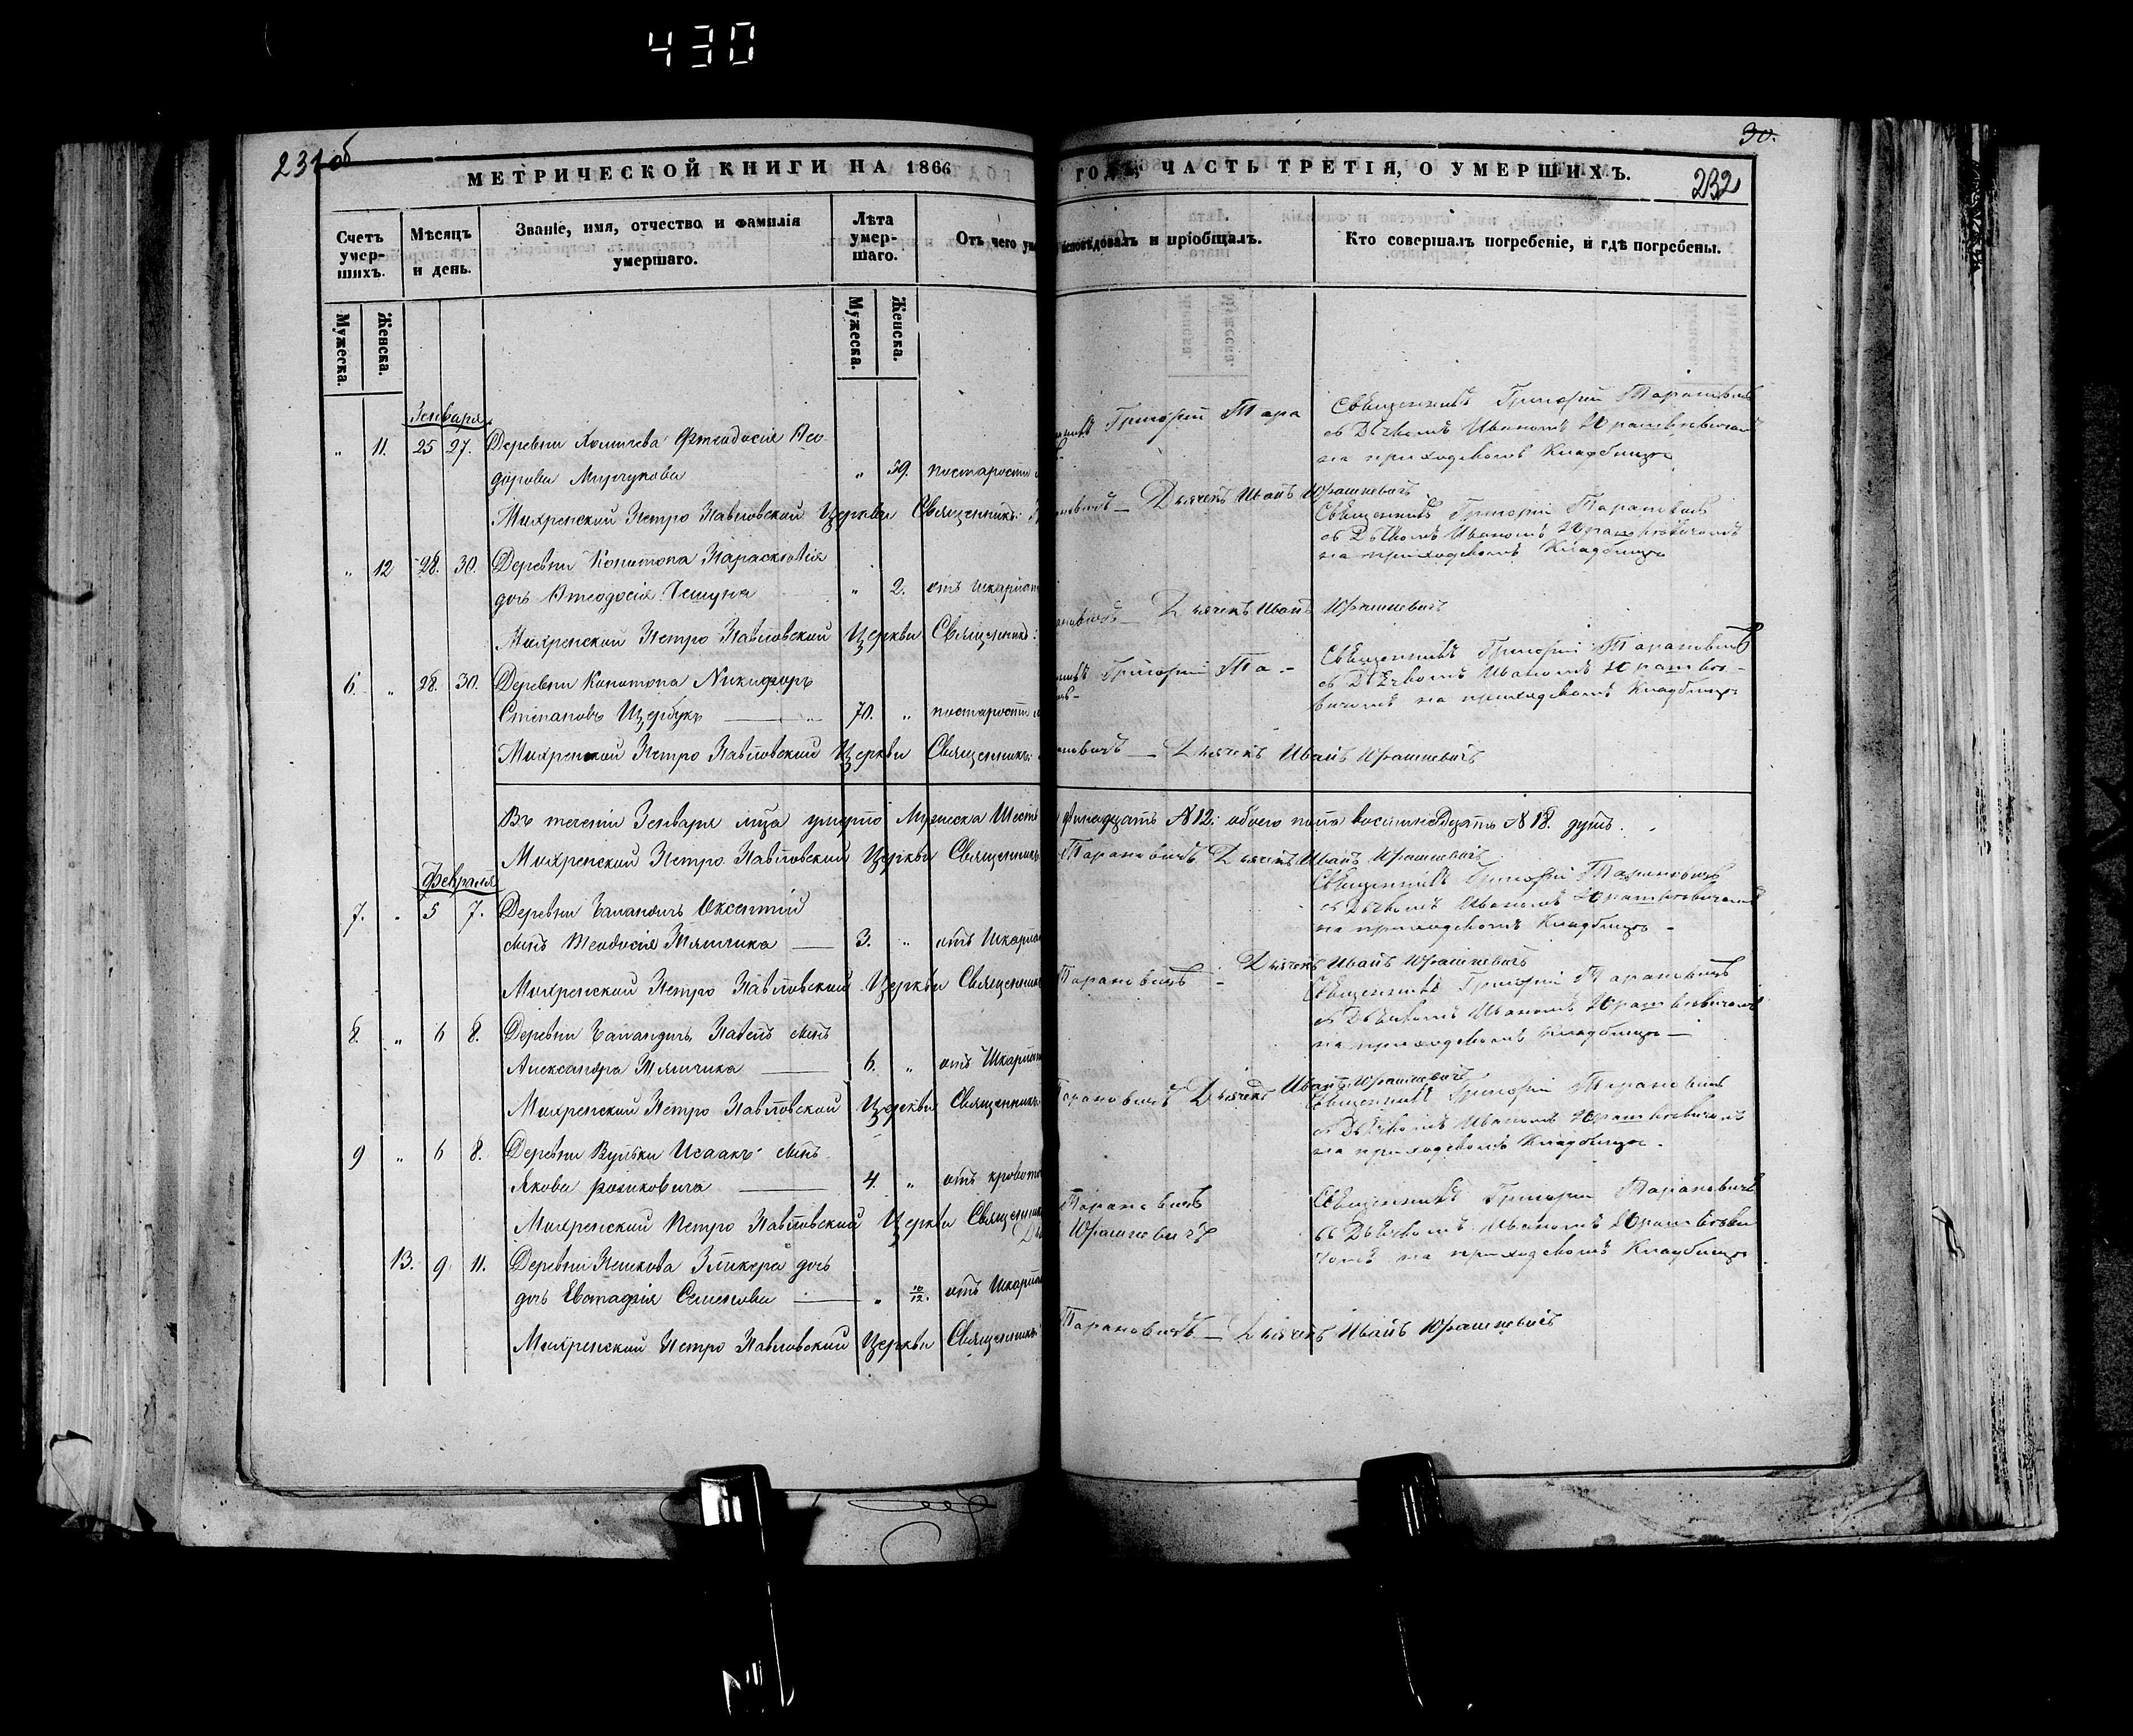 430
231 об
30.
232
МЕТРИЧЕСКОЙ КНИГИ НА 1866
ГОДЪ, ЧАСТЬ ТРЕТІЯ, О УМЕРШИХЪ.
Счетъ умер-шихъ.
Мѣсяцъ и день.
Званіе, имя, отчество и фамилія умершаго.
Лѣта умер-шаго.
Отъ чего ум
исповѣдовалъ и пріобщалъ.
Кто совершалъ погребеніе, и гдѣ погребены.
Мужеска.
Женска.
Мужеска.
Женска.
Генваря
" 11. 25 27. Деревни Хомичева Фтеодосія Ѳео-
дорова Мирчукова " 59. постарости
Григорій Тара
Священникъ Григорій Тарановичь
съ Дьячкомъ Иваномъ Юрашкевичемъ
на приходскомъ Кладбище
Михренской Петро Павловской Церкви Священникъ:
новичъ — Дьячекъ Иванъ Юрашкевичъ
" 12 28. 30. Деревни Конотопа Параскювія
дочь Ѳтеодосія " 2. отъ шкарлат
Священникъ Григорій Тарановичъ
съ Дьячкомъ Иваномъ Юрашкевичемъ
на приходскомъ Кладбище
Михренской Петро Павловской Церкви Священникъ:
новичъ — Дьячекъ Иванъ Юрашкевичъ
6. " 28. 30. Деревни Конотопа Никифоръ
Степановъ Щербукъ 70. " постарости
Григорій Та-
Священникъ Григорій Тарановичъ
съ Дьячкомъ Иваномъ Юрашке-
вичемъ на приходскомъ Кладбище
Михренской Петро Павловской Церкви Священникъ:
новичъ — Дьячекъ Иванъ Юрашкевичъ
Въ теченіи Генваря мца умерло Мужеска Шесть
N 12. обоего пола восемнадцать N 18. душъ.
Михренской Петро Павловской Церкви Священникъ
Тарановичъ Дьячекъ Иванъ Юрашкевичъ
Февраля
7. " 5 7. Деревни Іксентій
сынъ Теодосія 3. " отъ Шкарла
Священникъ Григорій Тарановичъ
съ Дьячкомъ Иваномъ Юрашкевичемъ
на приходскомъ Кладбище
Михренской Петро Павловской Церкви Священникъ
Тарановичъ — Дьячекъ Иванъ Юрашкевичъ
8. " 6 8. Деревни Павелъ сынъ
Александра 6. " отъ Шкарлат
Священникъ Григорій Тарановичъ
съ Дьячкомъ Иваномъ Юрашкевичемъ
на приходскомъ кладбище
Михренской Петро Павловской Церкви Священникъ
Тарановичъ Дьячекъ Иванъ Юрашкевичъ
9 " 6 8. Деревни Вульки Исаакъ сынъ
Якова 4. " отъ кровот
Священникъ Григорій Тарановичъ
съ Дьячкомъ Иваномъ Юрашкевичемъ
на приходскомъ Кладбище
Михренской Петро Павловской Церкви Священник
Тарановичъ
Юрашкевичъ
13. 9. 11. Деревни Гликера дочь
дочь Евстафія Семенова " 10/12. отъ Шкарла
Священникъ Григорій Тарановичъ
съ Дьячкомъ Иваномъ Юрашкеви
чомъ на приходскомъ Кладбище
Михренской Петро Павловской Церкви Священникъ
Тарановичъ — Дьячекъ Иванъ Юрашкевичъ